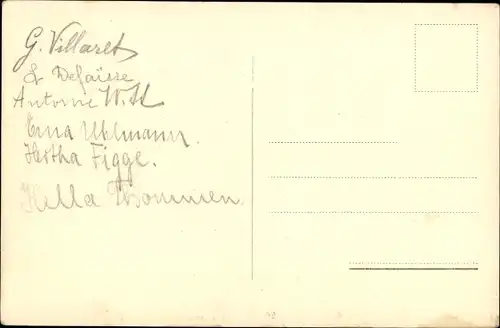 G. Villaret
L Defaisse
Antoine Will
Erna Uhlmann.
Hertha Figge.
Hella